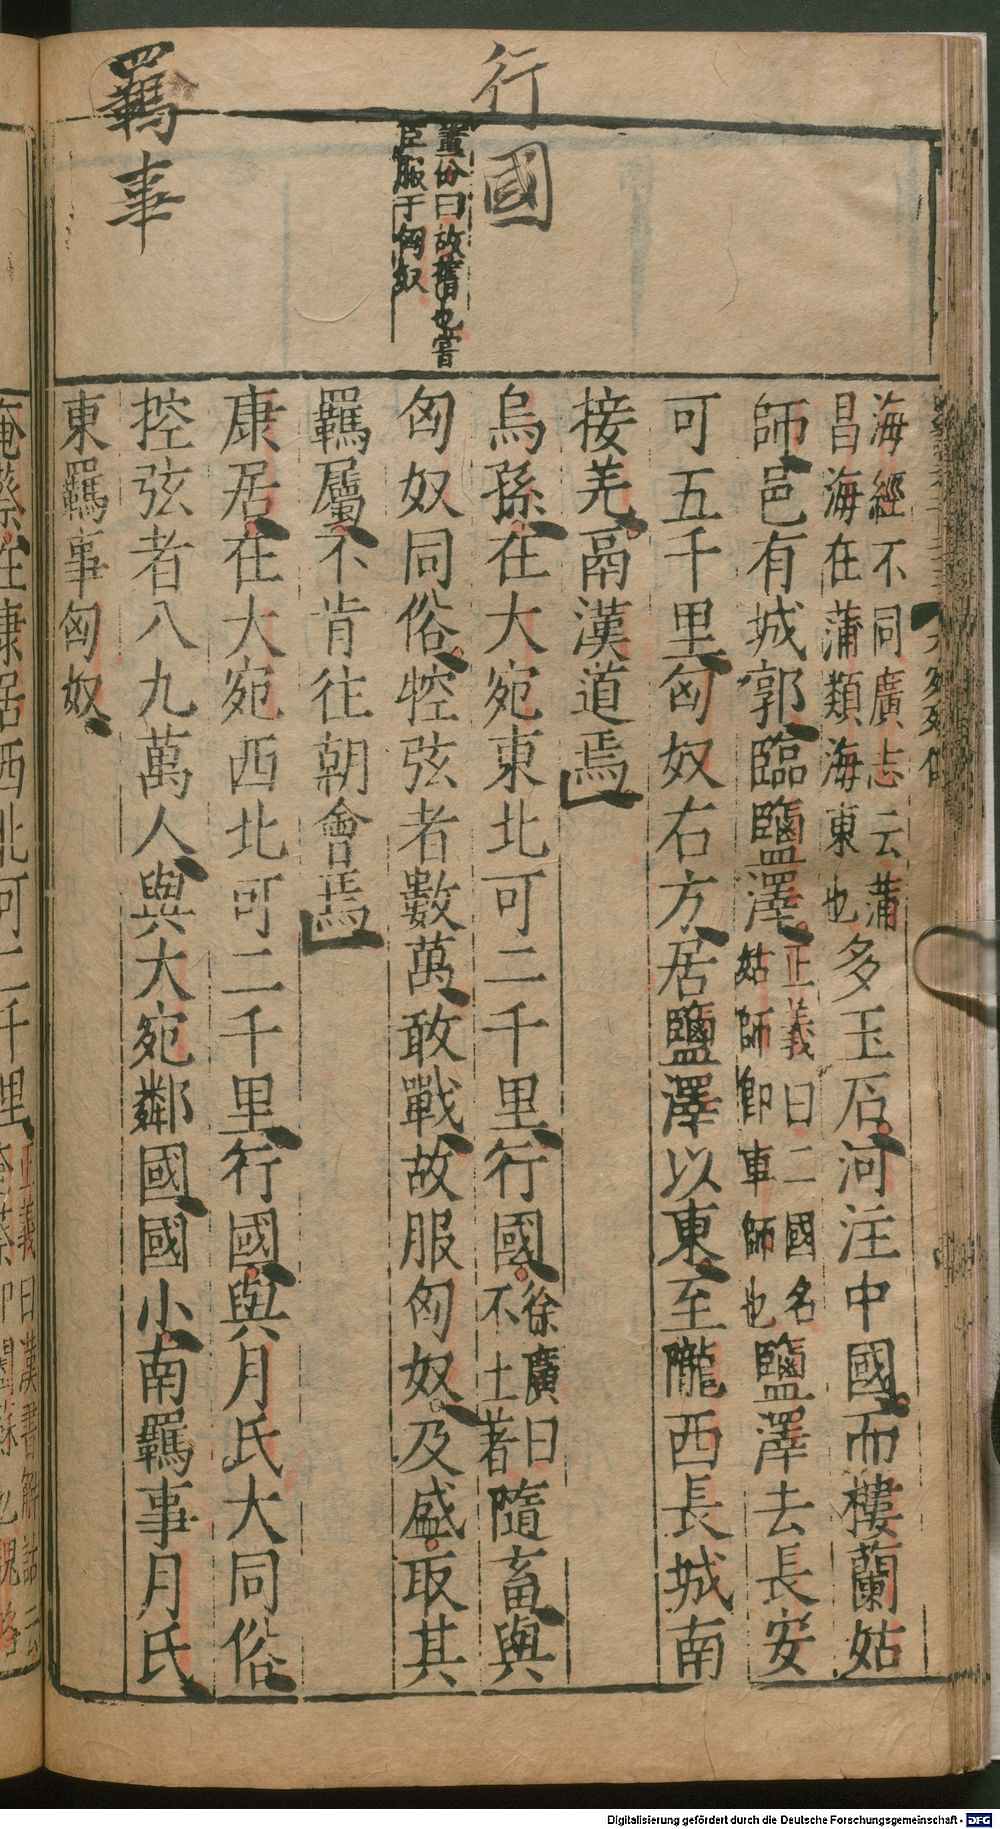 行國
羈事
董份曰故舊也嘗
臣服于匈奴
海經不同廣志云蒲
昌海在蒲類海東也
多玉石河注中國而樓蘭姑
師邑有城郭臨鹽澤
正義曰二國名
姑師卽車師也
鹽澤去長安
可五千里匈奴右方居鹽澤以東至隴西長城南
接羌鬲漢道焉
烏孫在大宛東北可二千里行國
徐廣曰
不土著
隨畜與
匈奴同俗控弦者數萬敢戰故服匈奴及盛取其
羈屬不肯往朝會焉
康居在大宛西北可二千里行國與月氏大同俗
控弦者八九萬人與大宛鄰國國小南羈事月氏
東羈事匈奴
奄蔡在康居西北可二千里
正義曰漢書解詁云
奄蔡卽闔蘇也魏略
Digitalisierung gefördert durch die Deutsche Forschungsgemeinschaft - DFG